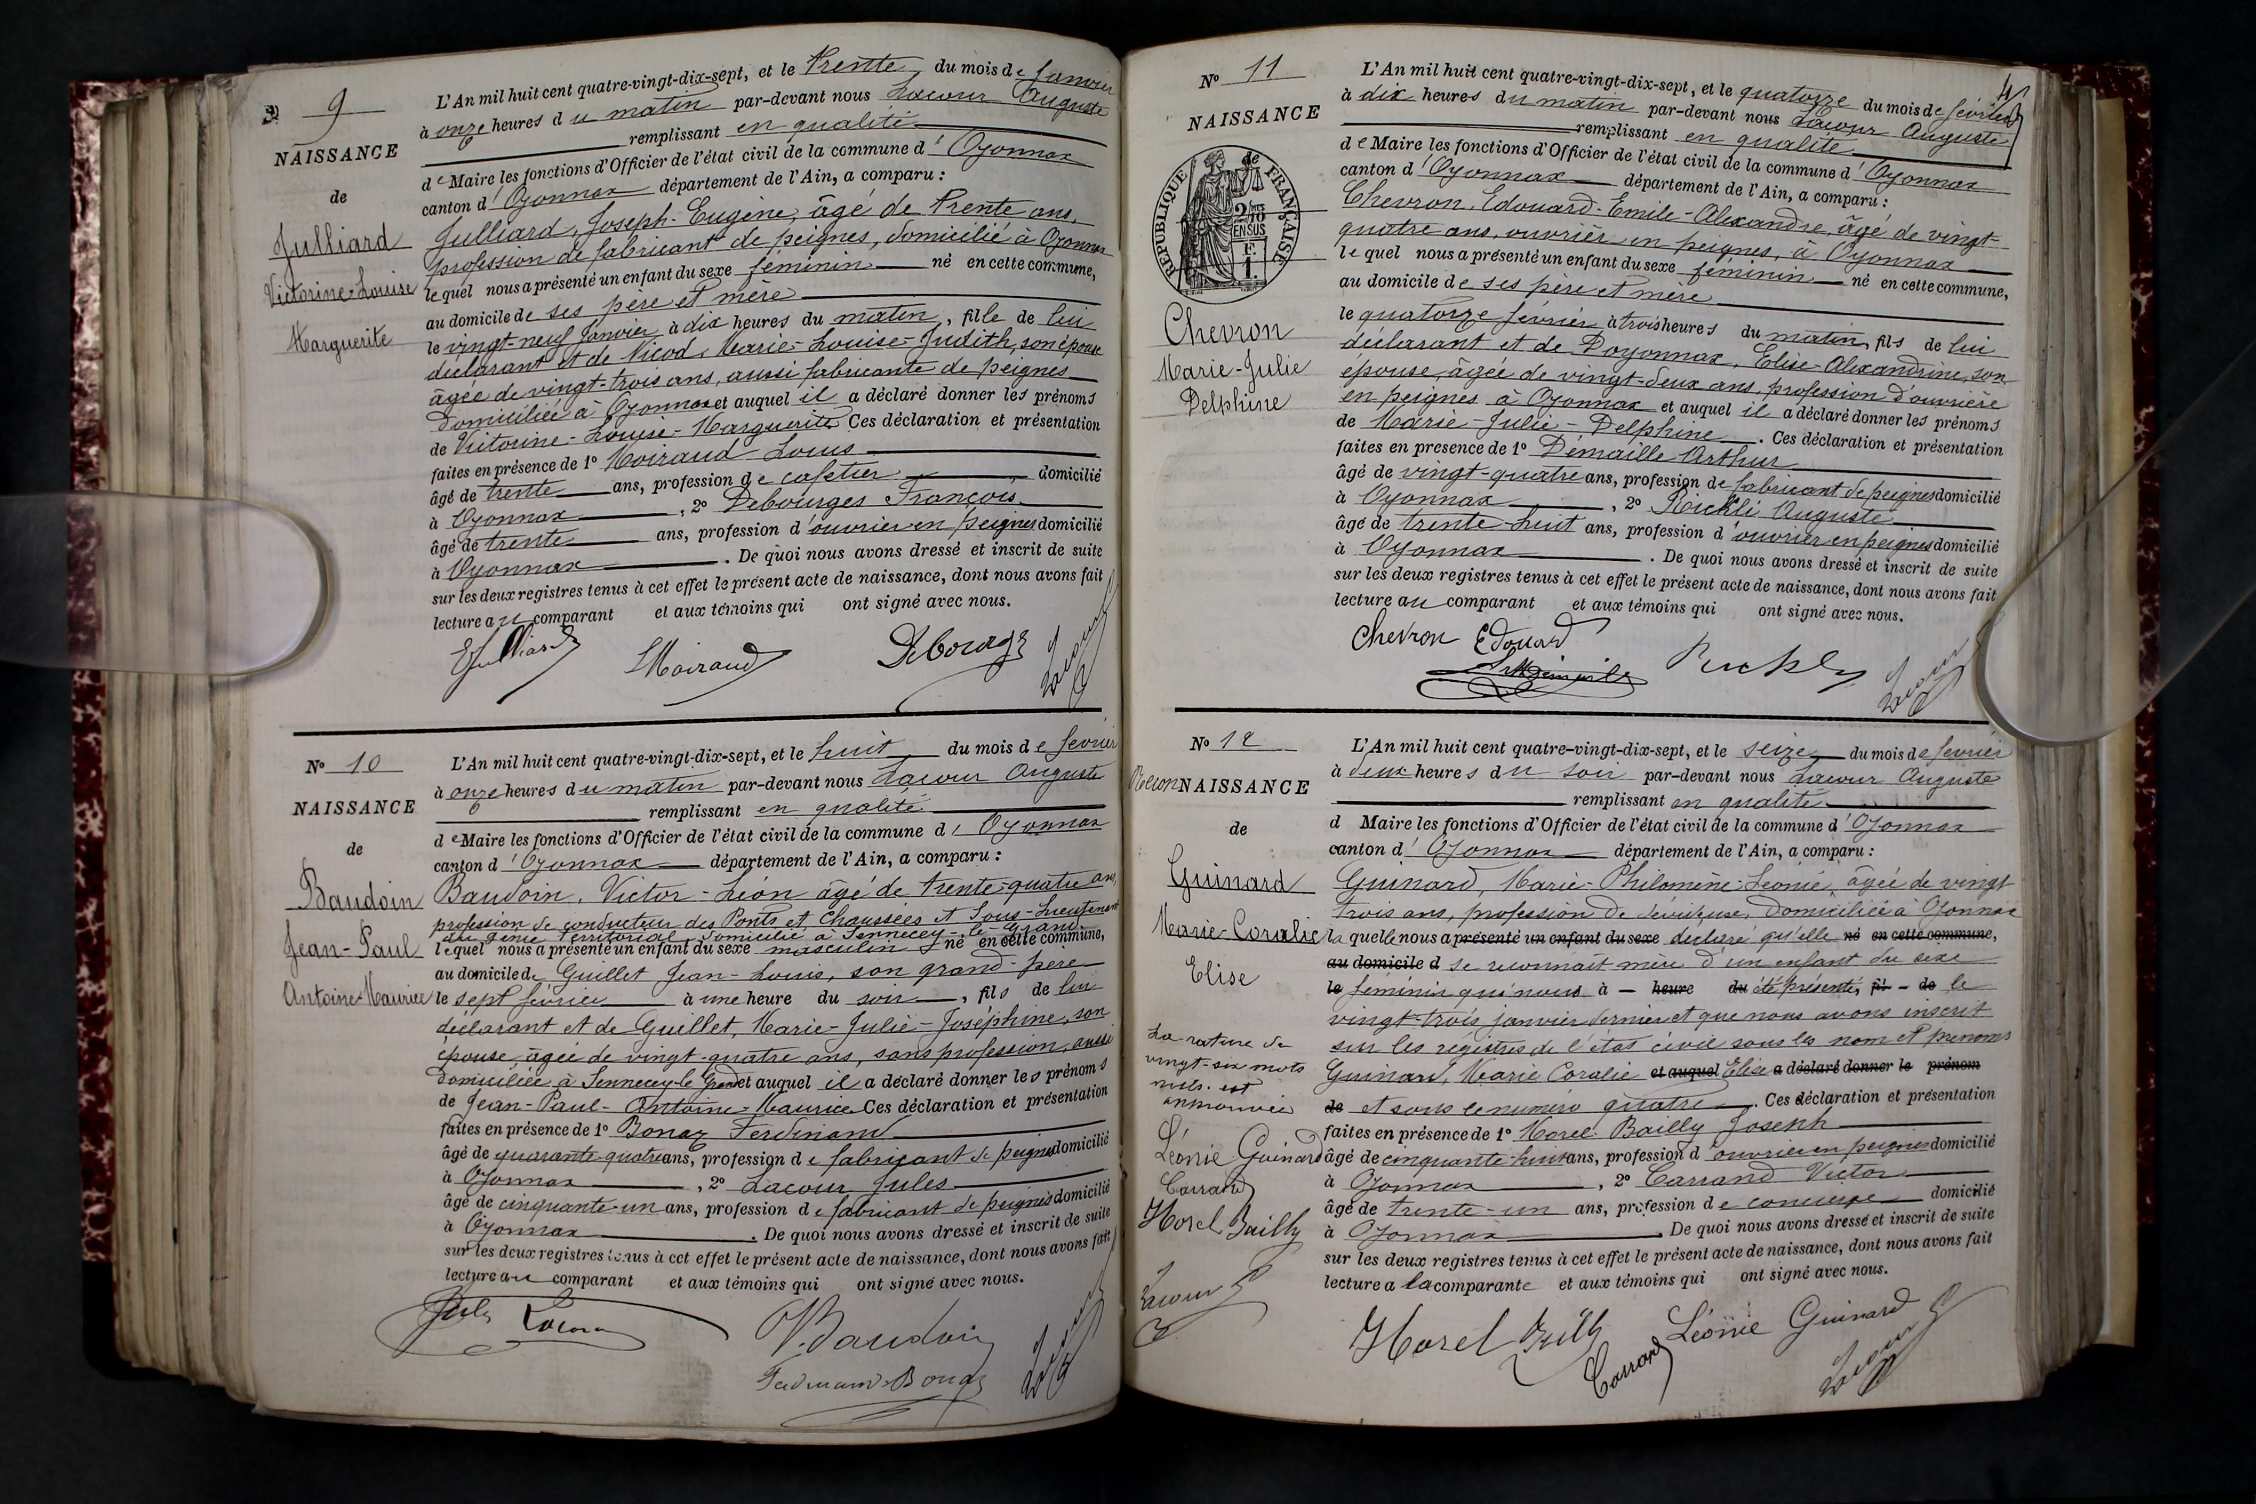 9
NAISSANCE
de
Julliard
Victorine-Louise
Marguerite
L'An mil huit cent quatre-vingt-dix-sept, et le trente du mois de Janvier
à onze heures du matin par-devant nous Lacour Auguste
remplissant en qualité
de Maire les fonctions d'Officier de l'état civil de la commune d'Oyonnax
canton d'Oyonnax département de l'Ain, a comparu :
Julliard, Joseph-Eugène, âgé de trente ans,
profession de fabricant de peignes, domicilié à Oyonnax
lequel nous a présenté un enfant du sexe féminin né en cette commune,
au domicile de ses père et mère
le vingt-neuf Janvier à dix heures du matin, fille de lui
déclarant et de Nicod, Marie-Louise-Judith, son épouse
âgée de vingt-trois ans, aussi fabricante de peignes
domiciliée à Oyonnax et auquel il a déclaré donner les prénoms
de Victorine-Louise-Marguerite Ces déclaration et présentation
faites en présence de 1º Moiraud Louis
âgé de trente ans, profession de cafetier domicilié
à Oyonnax, 2º Debourges François
âgé de trente ans, profession d'ouvrier en peignes domicilié
à Oyonnax. De quoi nous avons dressé et inscrit de suite
sur les deux registres tenus à cet effet le présent acte de naissance, dont nous avons fait
lecture au comparant et aux témoins qui ont signé avec nous.
EJulliard LMoiraud Debourges Lacour
Nº 10
NAISSANCE
de
Baudoin
Jean-Paul
Antoine-Maurice
L'An mil huit cent quatre-vingt-dix-sept, et le huit du mois de février
à onze heures du matin par-devant nous Lacour Auguste
remplissant en qualité
de Maire les fonctions d'Officier de l'état civil de la commune d'Oyonnax
canton d'Oyonnax département de l'Ain, a comparu :
Baudoin, Victor-Léon âgé de trente-quatre ans,
profession de conducteur des Ponts et Chaussées et Sous-Lieutenant
du génie territorial domicilié à Sennecey-le-Grand
lequel nous a présenté un enfant du sexe masculin né en cette commune,
au domicile de Guillet Jean-Louis, son grand-père
le sept février à une heure du soir, fils de lui
déclarant et de Guillet, Marie-Julie-Joséphine, son
épouse, âgée de vingt-quatre ans, sans profession, aussi
domiciliée à Sennecey-le-Grand et auquel il a déclaré donner les prénoms
de Jean-Paul-Antoine-Maurice Ces déclaration et présentation
faites en présence de 1º Bonaz Ferdinand
âgé de quarante-quatre ans, profession de fabricant de peignes domicilié
à Oyonnax, 2º Lacour Jules
âgé de cinquante-un ans, profession de fabricant de peignes domicilié
à Oyonnax. De quoi nous avons dressé et inscrit de suite
sur les deux registres tenus à cet effet le présent acte de naissance, dont nous avons fait
lecture au comparant et aux témoins qui ont signé avec nous.
Jules Lacour V. Baudoin Lacour
Ferdinand Bonaz
4
Nº 11
NAISSANCE
RÉPUBLIQUE FRANÇAISE
2/10 EN SUS
1 F.
de
Chevron
Marie-Julie
Delphine
L'An mil huit cent quatre-vingt-dix-sept, et le quatorze du mois de février
à dix heures du matin par-devant nous Lacour Auguste
remplissant en qualité
de Maire les fonctions d'Officier de l'état civil de la commune d'Oyonnax
canton d'Oyonnax département de l'Ain, a comparu :
Chevron, Edouard-Emile-Alexandre, âgé de vingt-
quatre ans, ouvrier en peignes, à Oyonnax
lequel nous a présenté un enfant du sexe féminin né en cette commune,
au domicile de ses père et mère
le quatorze février à trois heures du matin, fils de lui
déclarant et de Poyonnax, Elise-Alexandrine, son
épouse, âgée de vingt-deux ans, profession d'ouvrière
en peignes à Oyonnax et auquel il a déclaré donner les prénoms
de Marie-Julie-Delphine. Ces déclaration et présentation
faites en présence de 1º Démaille Arthur
âgé de vingt-quatre ans, profession de fabricant de peignes domicilié
à Oyonnax, 2º Rickli Auguste
âgé de trente-huit ans, profession d'ouvrier en peignes domicilié
à Oyonnax. De quoi nous avons dressé et inscrit de suite
sur les deux registres tenus à cet effet le présent acte de naissance, dont nous avons fait
lecture au comparant et aux témoins qui ont signé avec nous.
Chevron Edouard Lacour
Nº 12
NAISSANCE
de
Guinard
Marie-Coralie
Elise
La rature de
vingt-six mots
nuls est
approuvée
Léonie Guinard
Carrand
Morel Bailly
Lacour
L'An mil huit cent quatre-vingt-dix-sept, et le seize du mois de février
à deux heures du soir par-devant nous Lacour Auguste
remplissant en qualité
d Maire les fonctions d'Officier de l'état civil de la commune d'Oyonnax
canton d'Oyonnax département de l'Ain, a comparu :
Guinard, Marie-Philomène-Léonie, âgée de vingt
trois ans, profession de dévideuse, domiciliée à Oyonnax
laquelle nous a présenté un enfant du sexe déclaré qu'elle né en cette commune,
au domicile d se reconnait mère d'un enfant du sexe
le féminin qui nous à heure du été présenté, fi de le
vingt-trois janvier dernier et que nous avons inscrit
sur les registres de l'état civil sous les nom et prénoms
Guinard, Marie Coralie et auquel Elise a déclaré donner le prénom
de et sous le numéro quatre. Ces déclaration et présentation
faites en présence de 1º Morel Bailly Joseph
âgé de cinquante-huit ans, profession d'ouvrier en peignes domicilié
à Oyonnax, 2º Carrand Victor
âgé de trente-un ans, profession de concierge domicilié
à Oyonnax. De quoi nous avons dressé et inscrit de suite
sur les deux registres tenus à cet effet le présent acte de naissance, dont nous avons fait
lecture a la comparante et aux témoins qui ont signé avec nous.
Morel Bailly Carrand Léonie Guinard Lacour